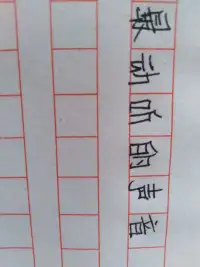 最动听的声音